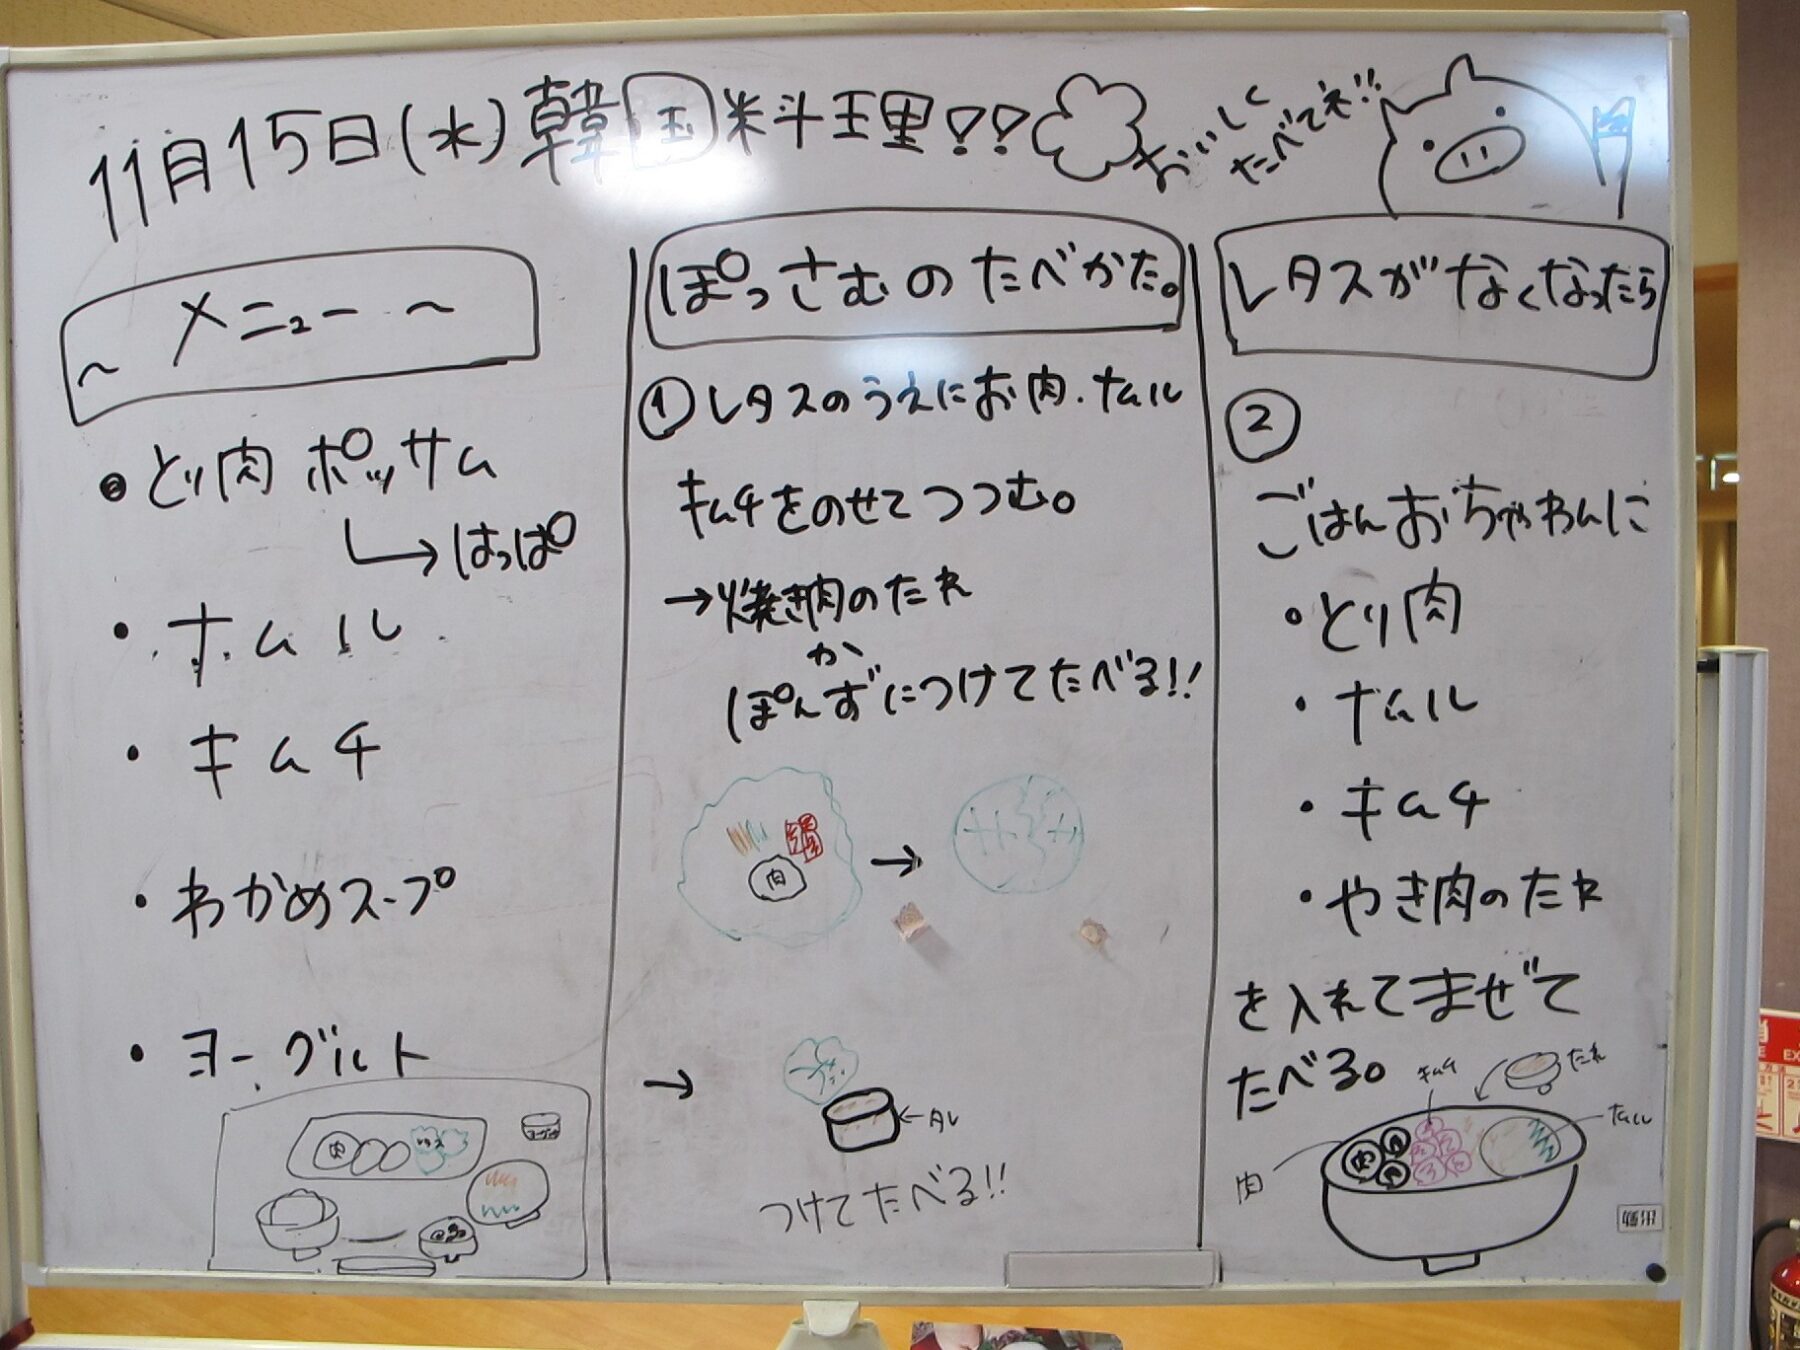 11月15日(水)韓国料理!!
おいしく
たべてネ!!
〜 メニュー 〜
・とり肉 ポッサム
→はっぱ
・ナムル
・キムチ
・わかめスープ
・ヨーグルト
肉
レタス
ヨーグルト
ぽっさむのたべかた。
①レタスのうえにお肉・ナムル
キムチをのせてつつむ。
→焼き肉のたれ
か
ぽんずにつけてたべる!!
肉
→
→
←タレ
つけてたべる!!
レタスがなくなったら
②
ごはんおちゃわんに
・とり肉
・ナムル
・キムチ
・やき肉のたれ
を入れてまぜて
たべる。
キムチ
たれ
ナムル
肉
肉